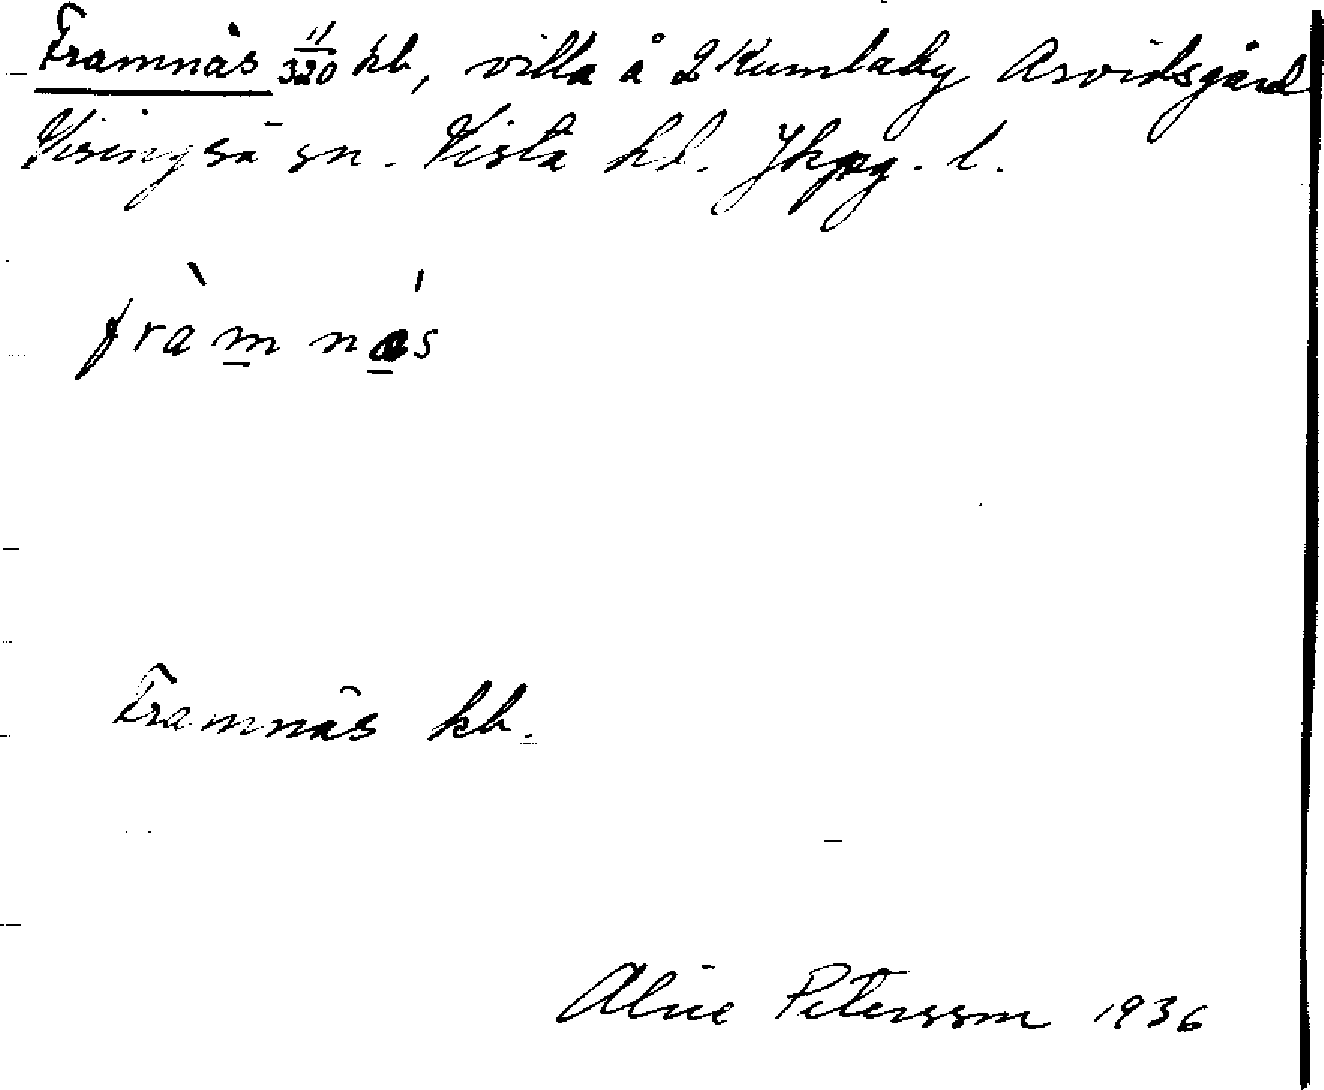 Framnäs 11/320 kb, villa å 2 Kumlaby Arvidsgård
Visingsö sn. Vista hd. Jkpg. l.
fràm nás
Framnäs kb.
Alice Petersson 1936